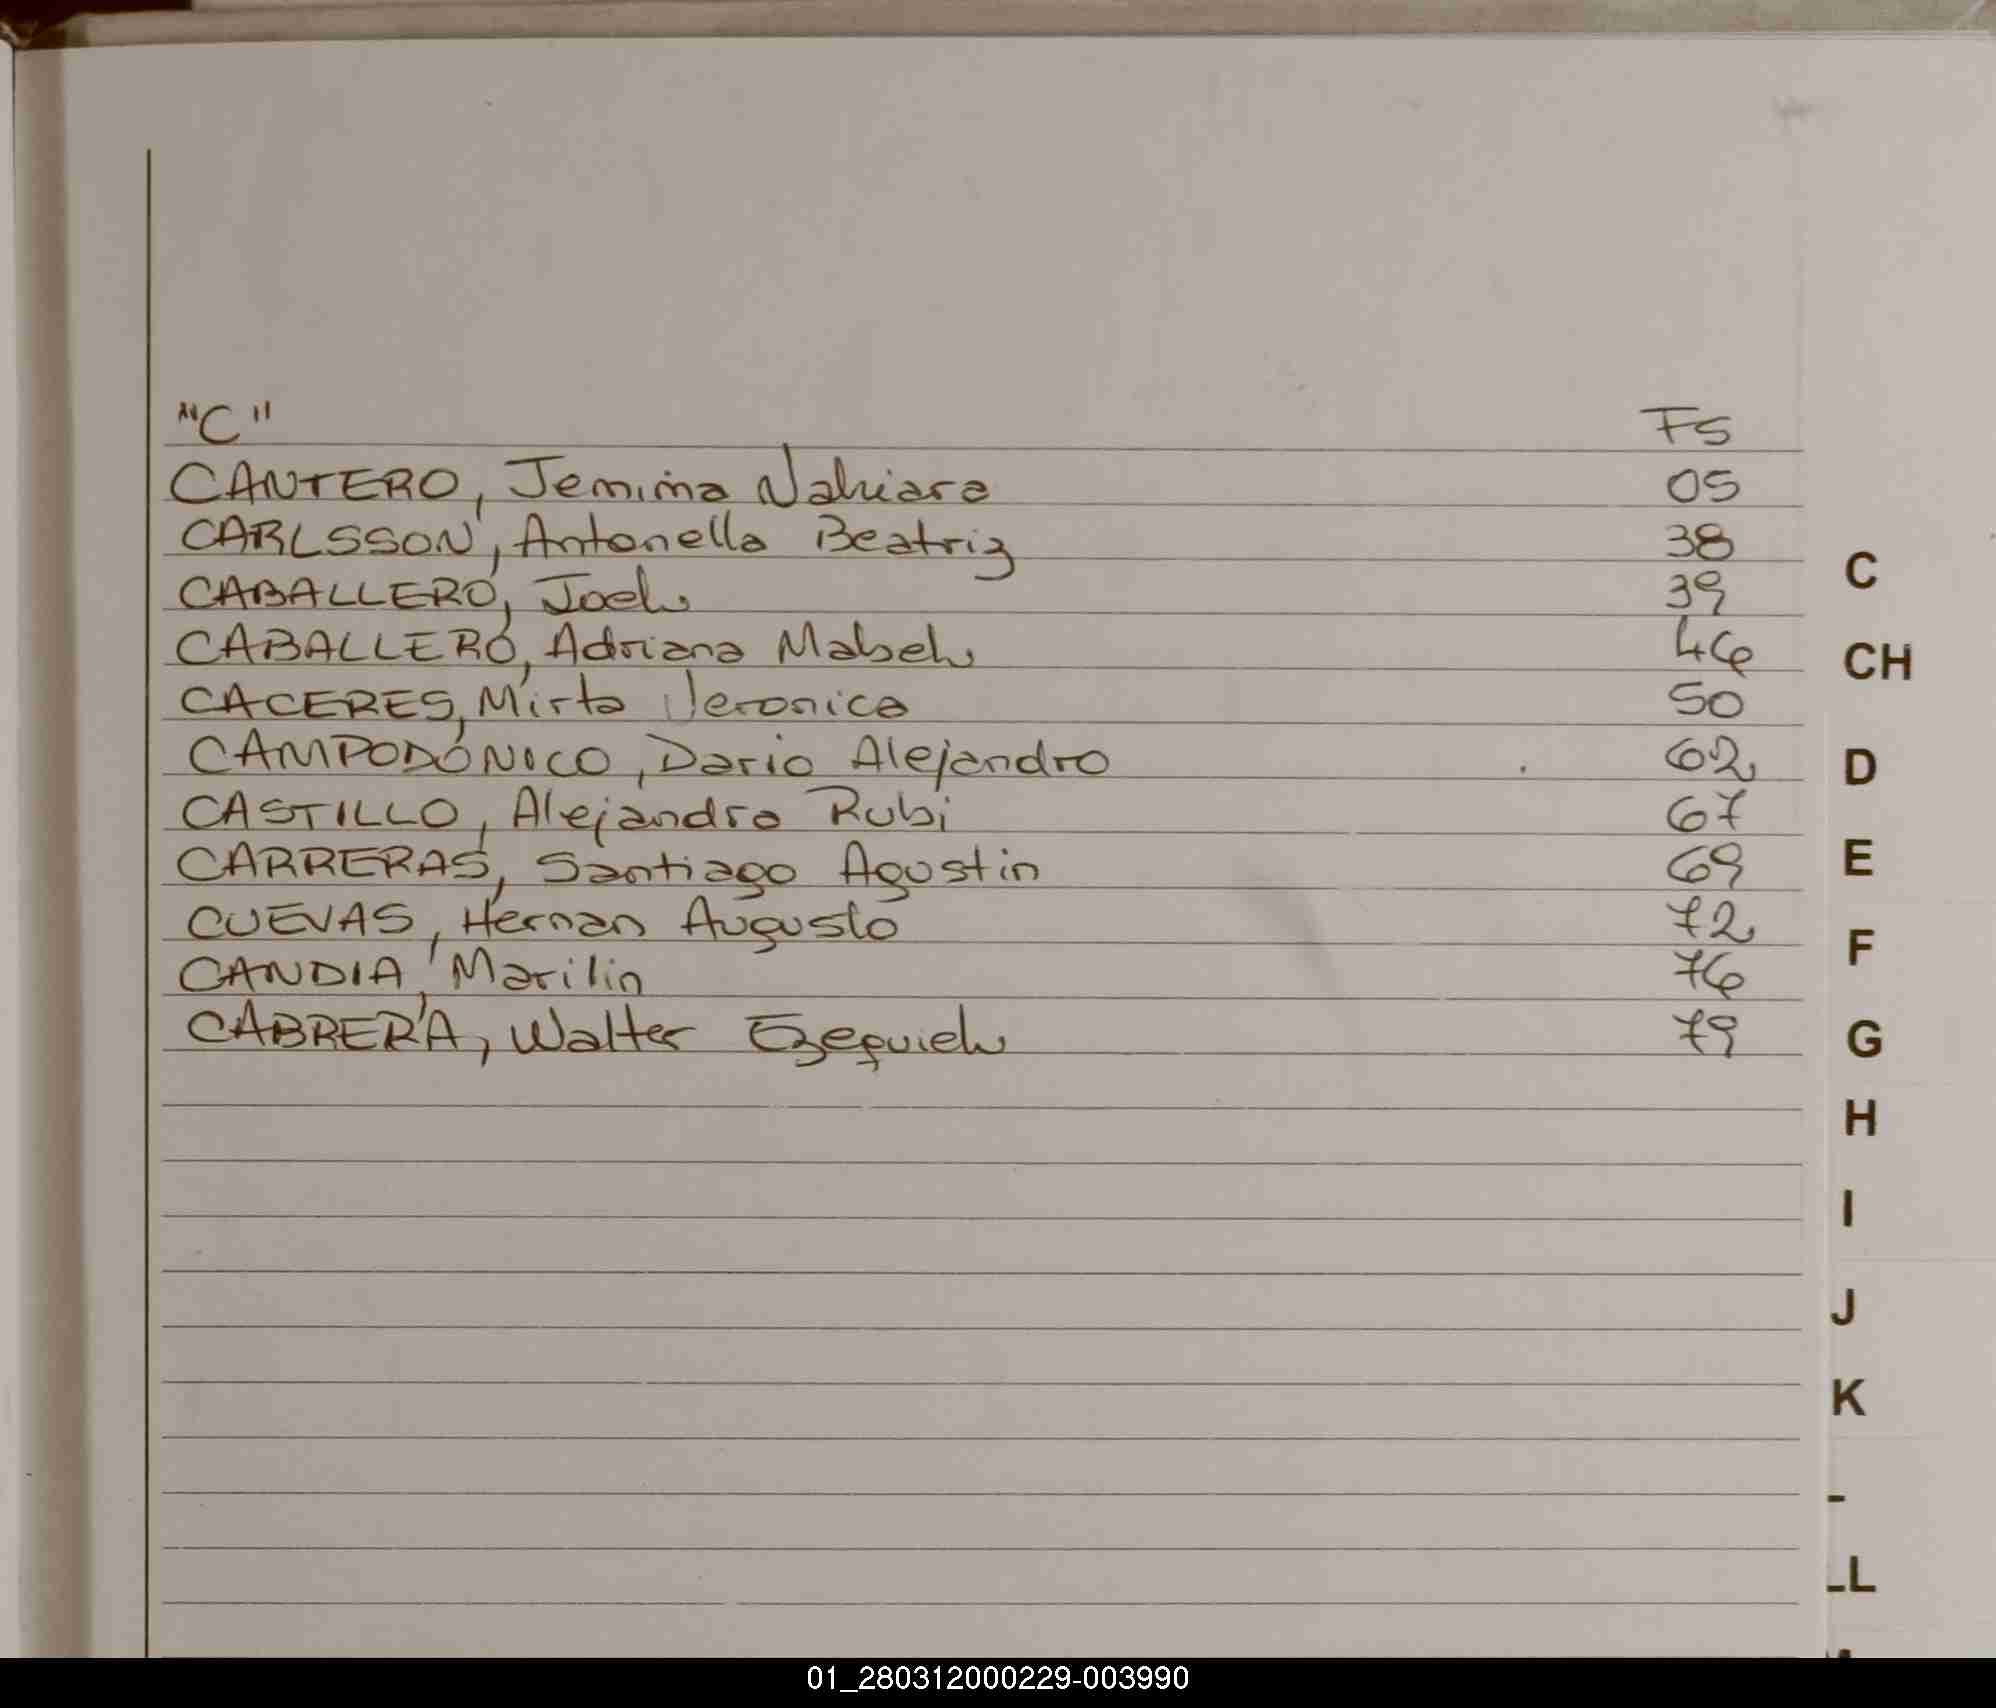 "C" FS
CANTERO, Jemima Nahiara 05
CARLSSON, Antonella Beatriz 38
CABALLERO, Joel 39
CABALLERO, Adriana Mabel 46
CACERES, Mirta Veronica 50
CAMPODÓNICO, Dario Alejandro 62
CASTILLO, Alejandro Rubi 67
CARRERAS, Santiago Agustin 69
CUEVAS, Hernan Augusto 72
CANDIA, Marilin 76
CABRERA, Walter Ezequiel 79
C
CH
D
E
F
G
H
I
J
K
LL
01_280312000229-003990